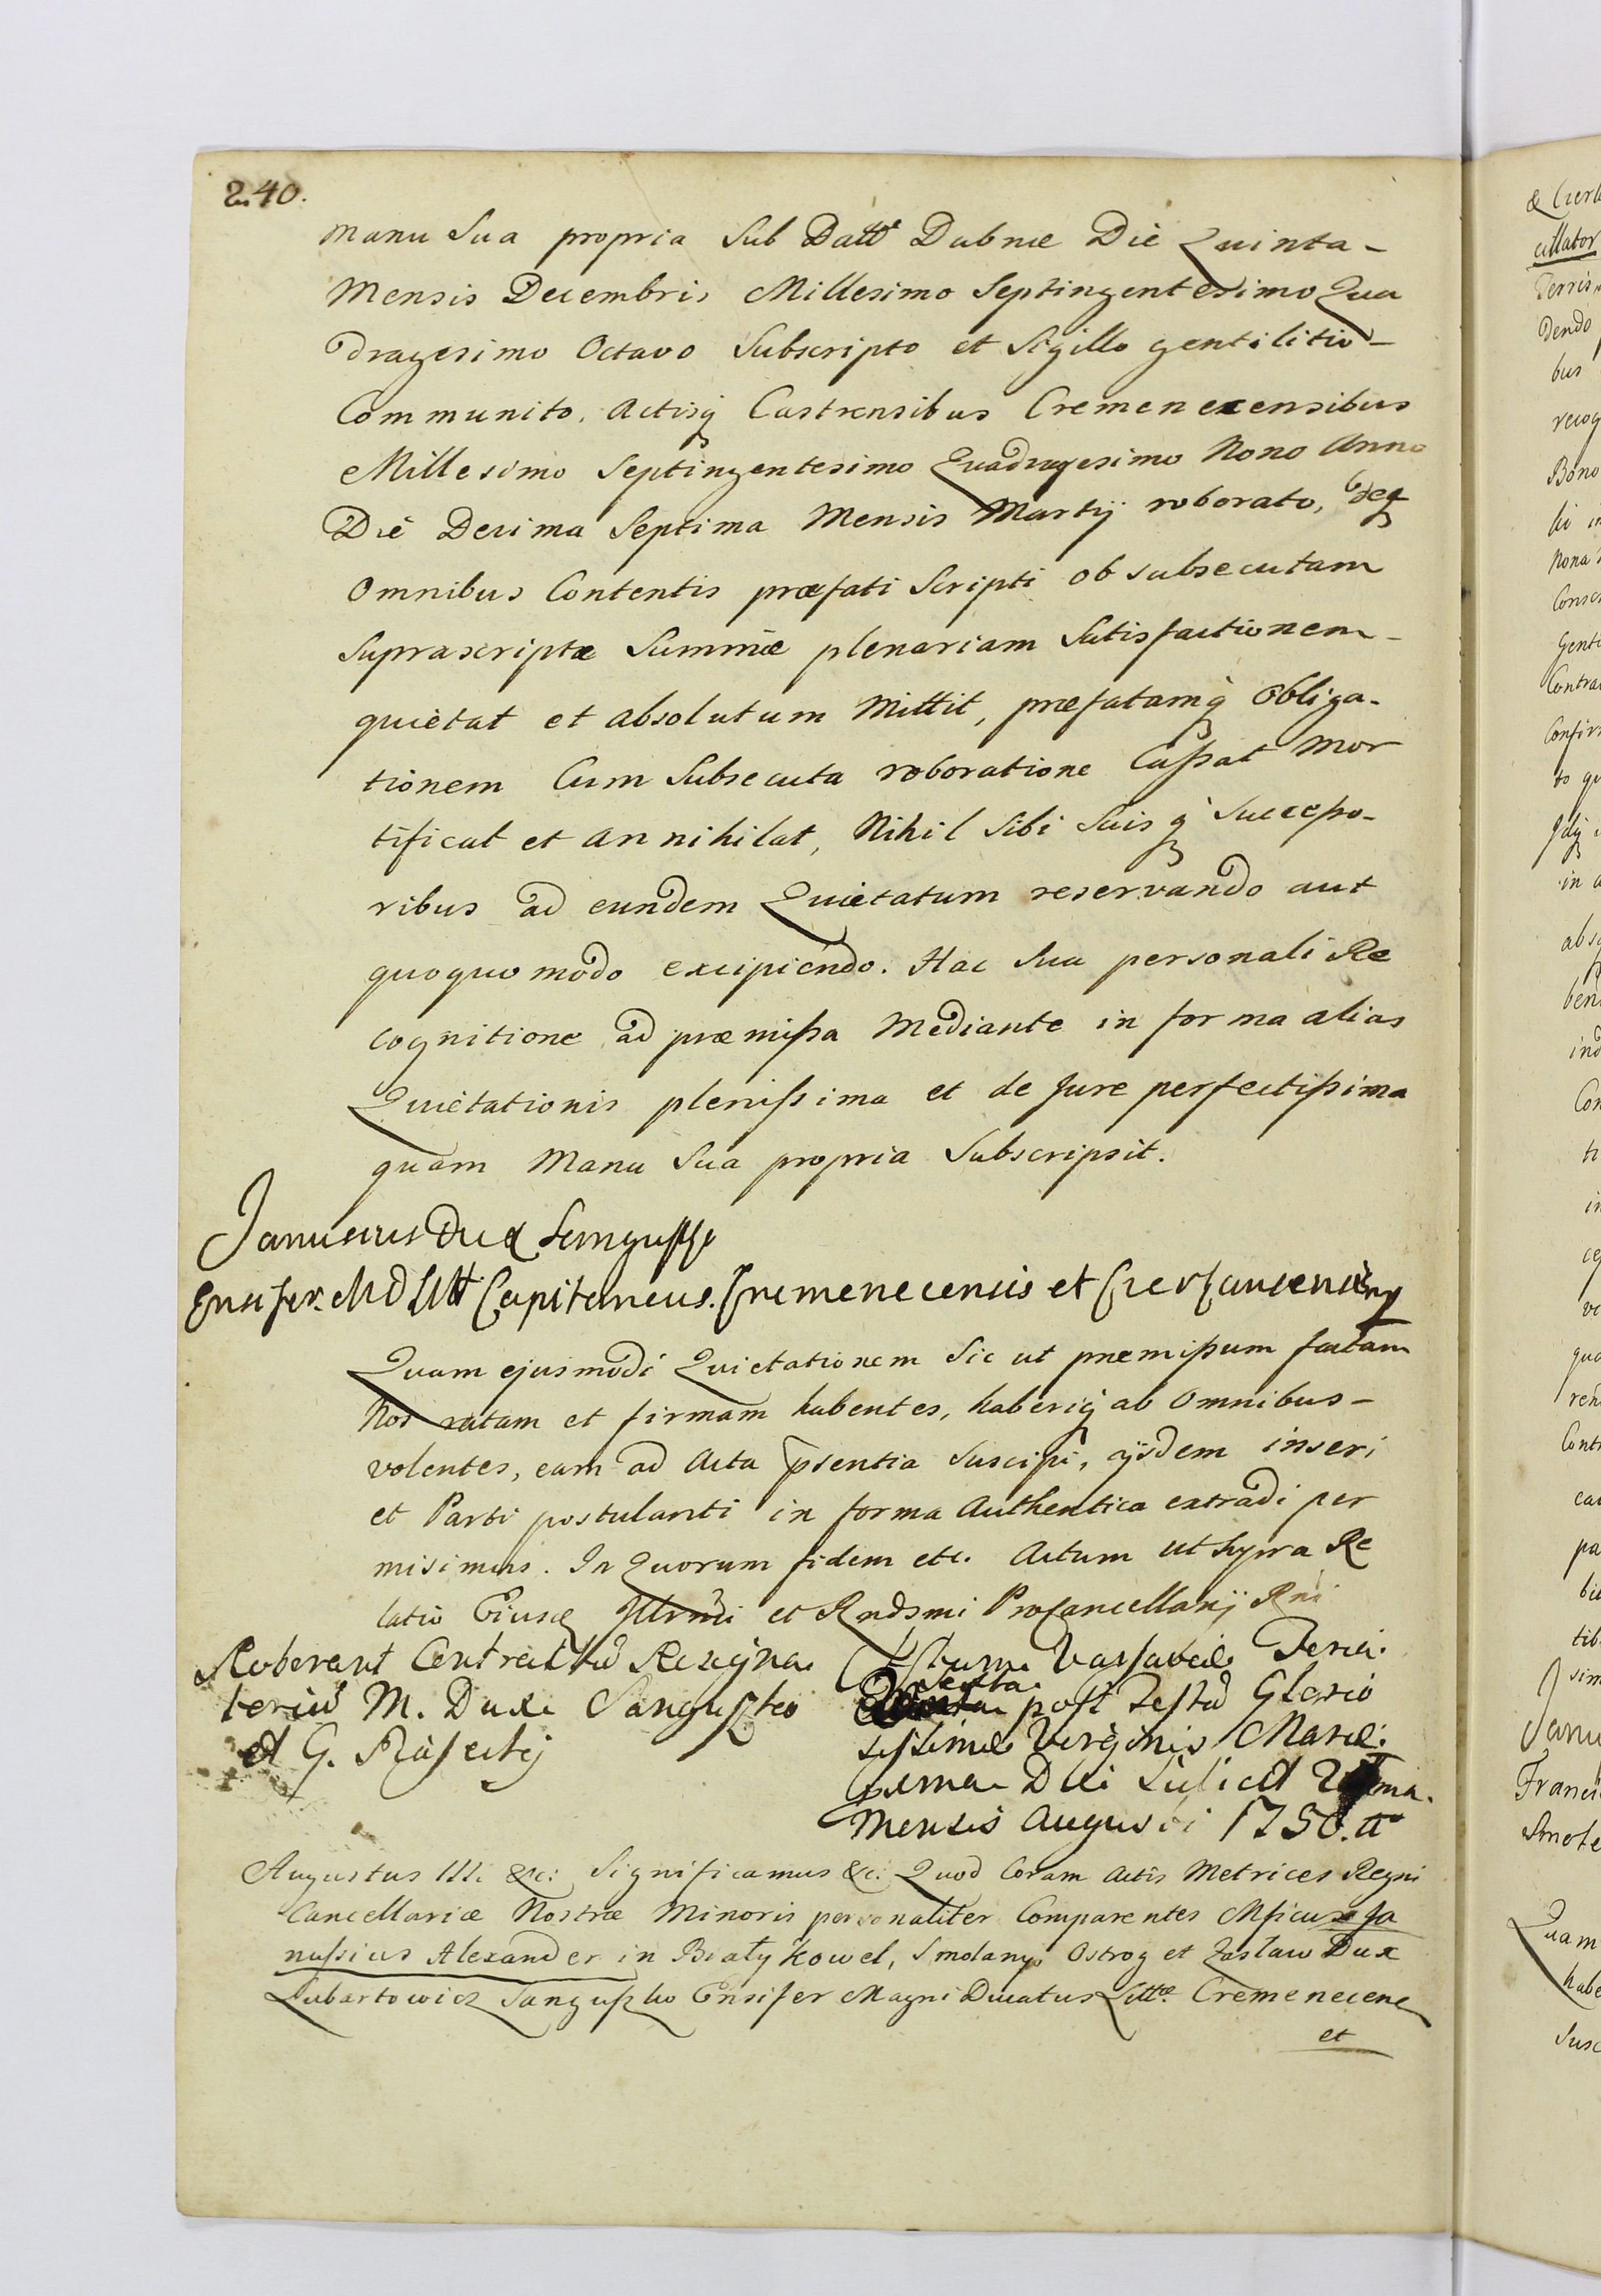 240.
manu Sua propria Sub Datt Dubnæ Die Quinta-
Mensis Decembris Millesimo Septingentesimo Qua
dragesimo Octavo Subscripto et Sigillo gentilitio-
Communito, Actisq Castrensibus Cremenecensibus
Millesimo Septingentesimo Quadragesimo Nono Anno
Die Decima Septima Mensis Martij roborato, deq
Omnibus Contentis præfati Scripti ob subsecutam
Suprascriptæ Summæ plenariam Satisfactionem-
quiètat et absolutum Mittit, præfatamq Obliga-
tionem Cum Subsecuta roboratione Cassat Mor
tificat et annihilat, Nihil Sibi Suisq Successo-
ribus ad eundem Quiètatum reservando aut
quoquo modo excipiendo. Hac Sua personali Re
cognitione ad præmissa Mediante in forma alias
Quiètationis plenissima et de Jure perfectissima
quam Manu Sua propria Subscripsit.
Janussius Dux Sanguszko
Ensifer M D Litt Capitaneus Cremenecensis et Czerkaucensis
Quam ejusmodi Quietationem Sic ut præmissum factam
Nos ratam et firmam habentes, haberiq ab Omnibus-
volentes, eam ad Acta psentia Suscipi, ijsdem inseri
et Parti postulanti in forma Authentica extradi per
misimus. In Quorum fidem etc. Actum ut Supra Re
latio Ejusd Illrmi et Rndsmi Procancellarij Rni
Roborant Contractu Resigna
toriu M. Duxe Sanguszko
et G. Ráfecki
Actum Varsaviæ Feria
Sexta
post Festu Glorio
sissimæ Virginis Mariæ
Mensis Augusti 1750. a
Augustus III. &c: Significamus &c: Quod Coram Actis Metrices Regni
Cancellariæ Nostræ Minoris personaliter Comparentes Mficus Ja
nussius Alexander in Biały Kowel, Smolany, Ostrog et Zasław Dux
Lubartowicz Sanguszko Ensifer Magni Ducatus Littæ Cremenecen
et